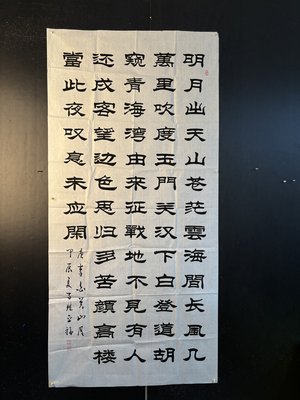 明月出天山苍茫雲海間长風几
萬里吹度玉門关汉下白登道胡
窥青海湾由来征戰地不見有人
还戍客望边色思归多苦顏高楼
當此夜叹息未应閑
唐李白关山月
甲辰夏